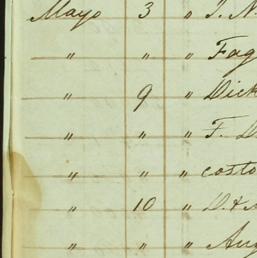 Mayo 3 " J. N.
" " " Fag
" 9 " Dick
" " " F. D
" " " costo
" 10 " D. &
" " " Aug